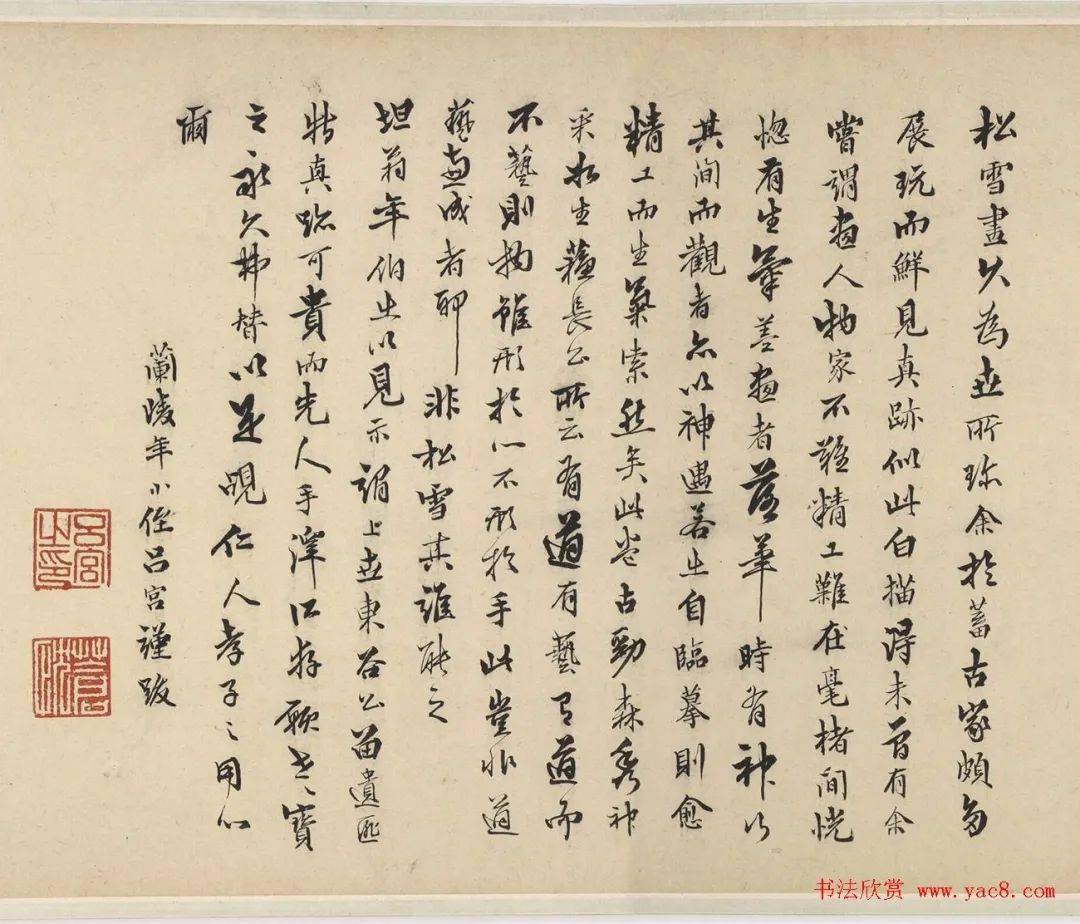 松雪畫久為世所珍余於蓄古家頗多
展玩而鮮見真跡似此白描得未曾有余
嘗謂畫人物家不難精工難在毫楮間恍
惚有生氣善畫者落筆時有神以
其間而觀者亦以神遇若止自臨摹則愈
精工而生氣索然矣此卷古勁森秀神
采如生蘇長公所云有道有藝有道而
不藝則物雖形於心不形於手此豈非道
藝兩成者耶非松雪其誰能之
坦翁年伯出以見示謂上世東谷公留遺匪
特真跡可貴而先人手澤以存願世世寶
之永久弗替以是覘仁人孝子之用心
爾
蘭陵年小侄呂宮謹跋
呂宮之印
书法欣赏 www.yac8.com